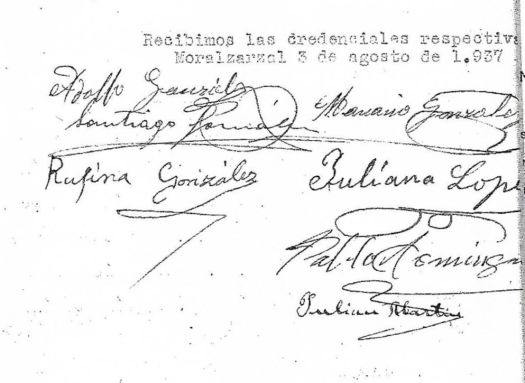 Recibimos las dredenciales respectiva
Moralzarzal 3 de agosto de 1.937
Adolfo González
Santiago Mariano Gonzale
Rufina González Juliana Lope
Pablo Doming
Julian Martin